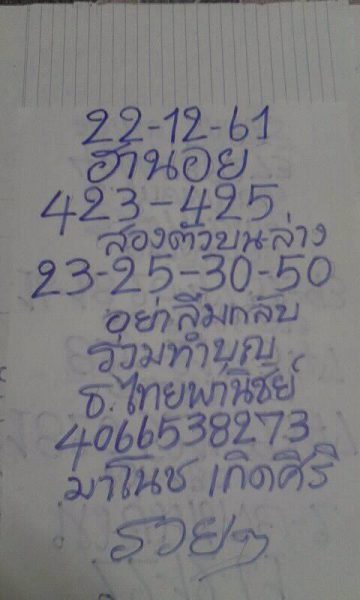 22-12-61
ฮานอย
423-425
สองตัวบน-ล่าง
23-25-30-50
อย่าลืมกลับ
ร่วมทำบุญ
ธ.ไทยพานิชย์
4066538273
มาโนช เกิดศิริ
รวยๆ